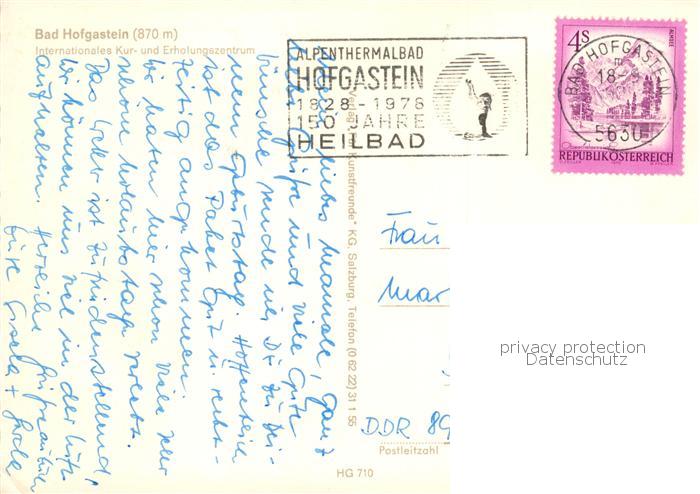 Bad Hofgastein (870 m)
Internationales Kur- und Erholungszentrum
ALPENTHERMALBAD
HOFGASTEIN
1828-1978
150 JAHRE
HEILBAD
4S
ALMSEE
BAD HOFGASTEIN
18-9
5630
REPUBLIK ÖSTERREICH
liebes ganz
Grüße und viele gute
wünsche sende ich Dir zu Dei-
nem Geburtstag. Hoffentlich
ist das Paket gut u. recht-
zeitig angekommen.
Wir haben hier schon viele sehr
schöne Urlaubstage verlebt.
Das Wetter ist zufriedenstellend,
wir können uns viel in der Luft
aufhalten. Herzliche
Gisela +
Kunstfreunde" KG, Salzburg, Telefon (0 62 22) 31 1 55
Frau
Mar
DDR 89
Postleitzahl
HG 710
privacy protection
Datenschutz